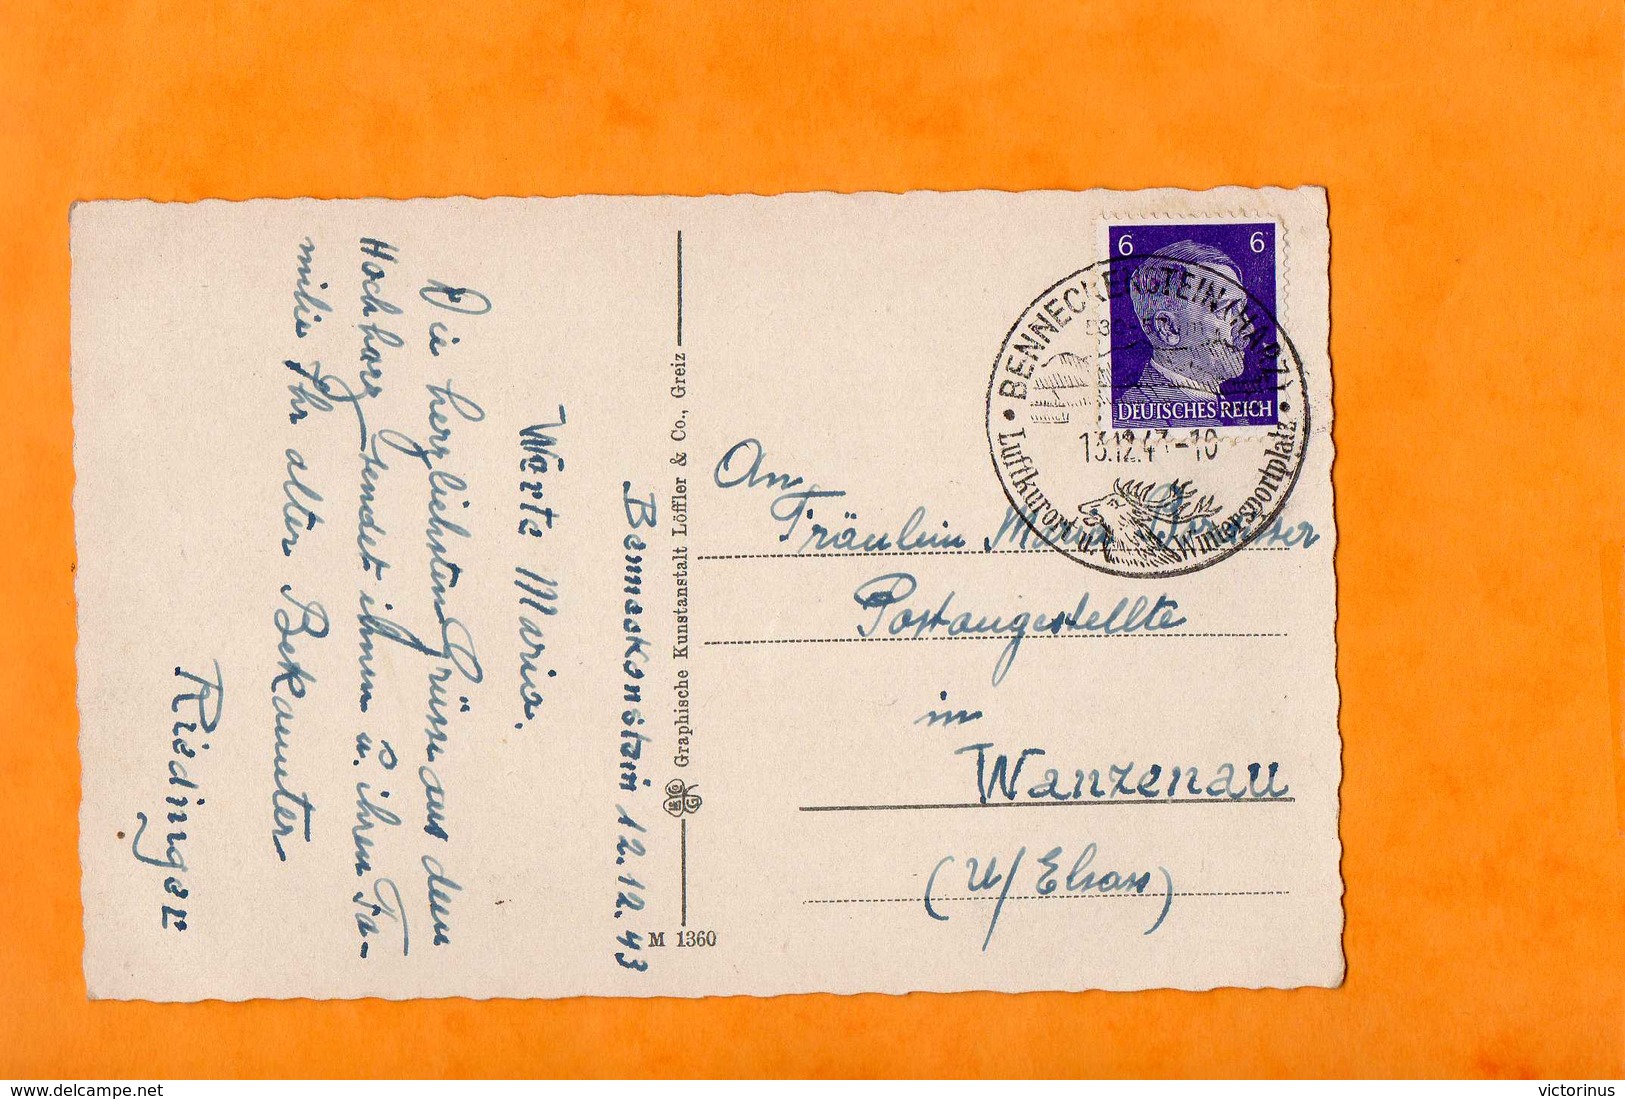 Benneckenstein 12.12.43
Werte Maria.
Die herzlichsten Grüsse aus dem
Hochharz sendet ihnen u. ihrer Fa-
milie Ihr alter Bekannter
Riedinger
Graphische Kunstanstalt Löffler & Co., Greiz
M 1360
6 6
DEUTSCHES REICH
BENNECKENSTEIN (HARZ)
13.12.43-10
Luftkurort u. Wintersportplatz
An
Fräulein Maria
Postangestellte
in
Wanzenau
(U/Elsass)
delcampe.net
victorinus